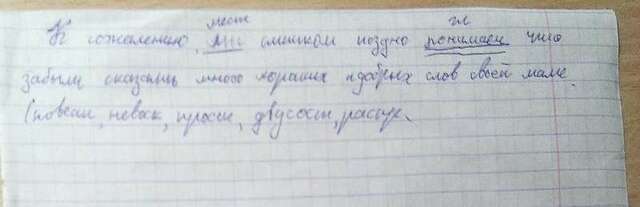 мест гл
К сожалению, мы слишком поздно понимаем что
забыли сказать много хороших и добрых слов своей маме.
(повеств, невоск, прост, двусост, распр.